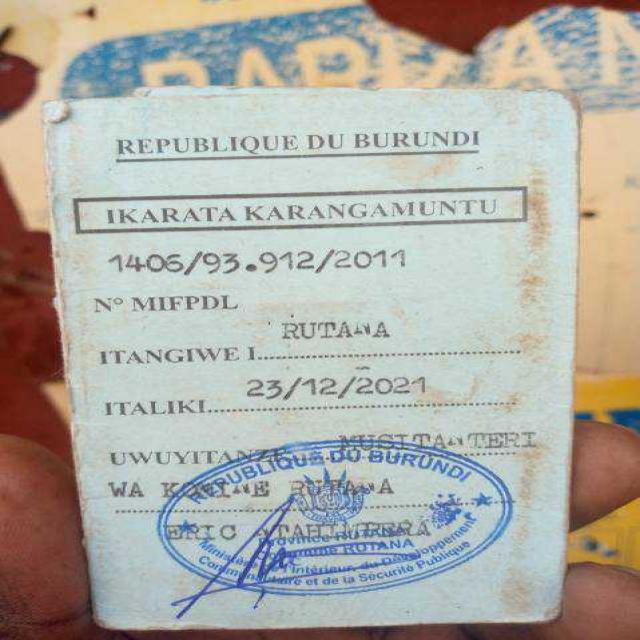 REPUBLIQUE DU BURUNDI
IKARATA KARANGAMUNTU
1406/93.912/2011
N° MIFPDL
RUTANA
ITANGIWE I
23/12/2021
ITALIKI
UWUYITANZE MUSITANTERI
WA KOMINE RUTANA
ERIC
REPUBLIQUE DU BURUNDI
Province RUTANA
Commune RUTANA
Ministère de l'Intérieur, du Développement
Communautaire et de la Sécurité Publique